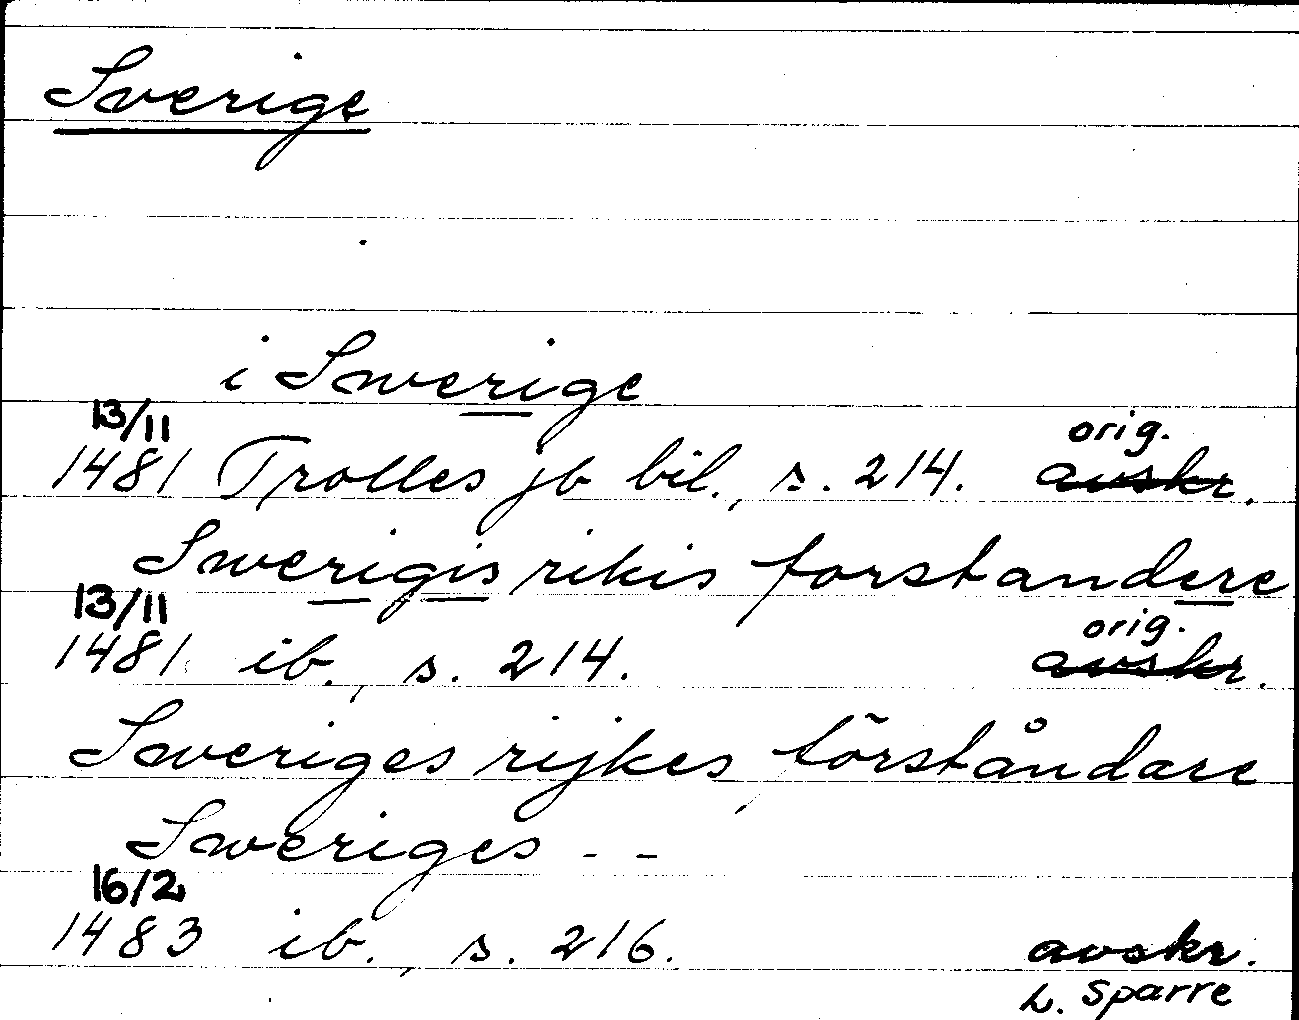 Sverige
i Swerige
13/11 orig.
1481 Trolles jb bil., s. 214. avskr.
Swerigis rikis forstandere
13/11 orig.
1481 ib., s. 214. avskr.
Sweriges rijkes förståndare
Sweriges - -
16/2
1483 ib., s. 216. avskr.
L. Sparre